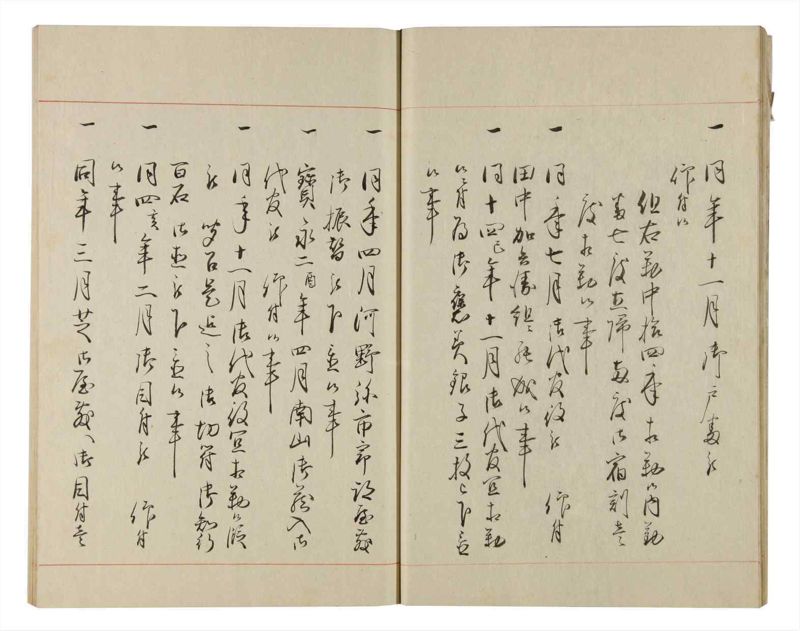 一 同年十一月御戸番被
仰付候
但右勤中拾四年相勤候内勤
番七度立帰両度御宿割壱
度相勤候事
一 同年七月御代官役被 仰付
田中加兵衛組被成候事
一 同十四巳年十一月御代官宜相勤
候ニ付為御褒美銀子三枚被下置
候事
一 同年四月河野弥市郎記屋敷
御振替被下置候事
一 寶永二酉年四月南山御蔵入御
代官被 仰付候事
一 同年十一月御代官役宜相勤候段
被 只今迄之御切符御知行
百石御直被下置候事
一 同四亥年二月御目付被 仰付
候事
一 同年三月芝御屋敷へ御目付壱